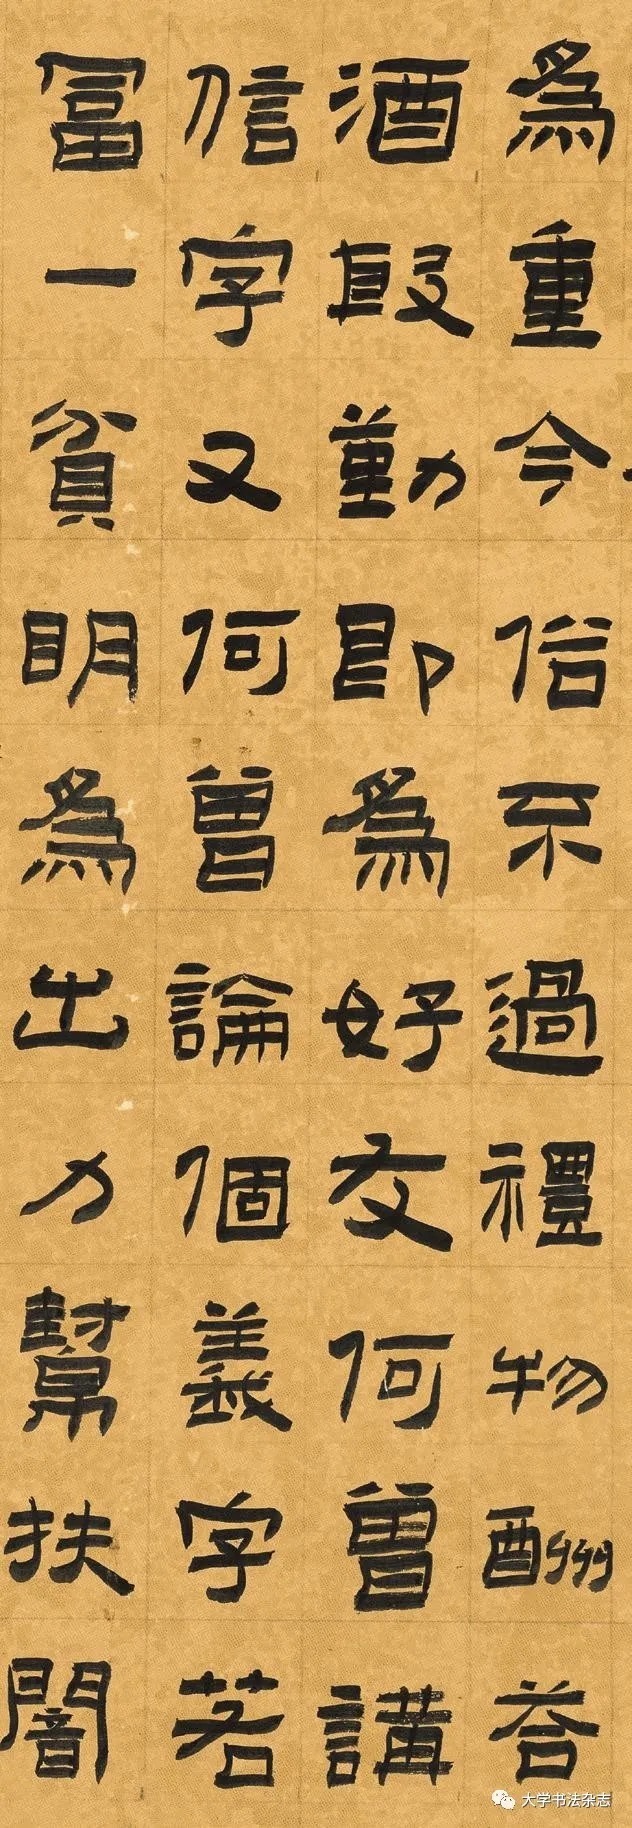 為重今俗不過禮物酬荅
酒殷勤即為好友何曾講
信字又何曾論個義字若
富一貧明為出力幫扶闇
大学书法杂志